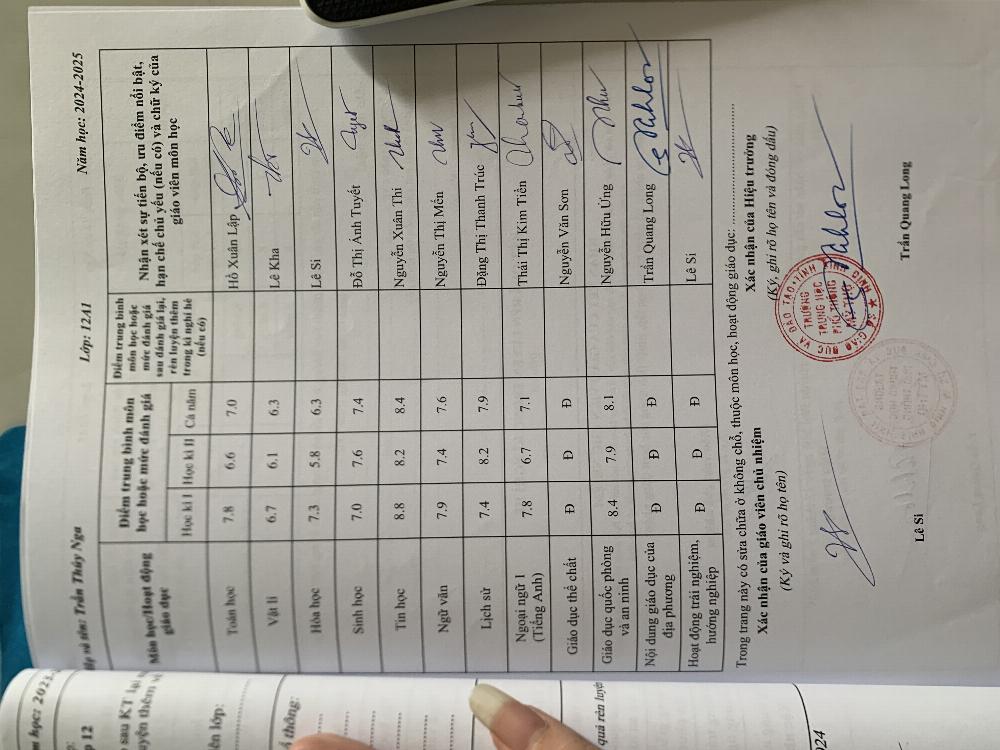 Họ và tên: Trần Thúy Nga Lớp: 12A1 Năm học: 2024-2025
Môn học/Hoạt động giáo dục
Điểm trung bình môn học hoặc mức đánh giá
Học kì I Học kì II Cả năm
Điểm trung bình môn học hoặc mức đánh giá sau đánh giá lại, rèn luyện thêm trong kì nghỉ hè (nếu có)
Nhận xét sự tiến bộ, ưu điểm nổi bật, hạn chế chủ yếu (nếu có) và chữ ký của giáo viên môn học
Toán học 7.8 6.6 7.0 Hồ Xuân Lập
Vật lí 6.7 6.1 6.3 Lê Kha
Hóa học 7.3 5.8 6.3 Lê Si
Sinh học 7.0 7.6 7.4 Đỗ Thị Ánh Tuyết
Tin học 8.8 8.2 8.4 Nguyễn Xuân Thi
Ngữ văn 7.9 7.4 7.6 Nguyễn Thị Mến
Lịch sử 7.4 8.2 7.9 Đặng Thị Thanh Trúc
Ngoại ngữ 1 (Tiếng Anh) 7.8 6.7 7.1 Thái Thị Kim Tiền
Giáo dục thể chất Đ Đ Đ Nguyễn Văn Sơn
Giáo dục quốc phòng và an ninh 8.4 7.9 8.1 Nguyễn Hữu Ứng
Nội dung giáo dục của địa phương Đ Đ Đ Trần Quang Long
Hoạt động trải nghiệm, hướng nghiệp Đ Đ Đ Lê Si
Trong trang này có sửa chữa ở không chỗ, thuộc môn học, hoạt động giáo dục:
Xác nhận của giáo viên chủ nhiệm
(Ký và ghi rõ họ tên)
Lê Si
Xác nhận của Hiệu trưởng
(Ký, ghi rõ họ tên và đóng dấu)
TRƯỜNG
TRUNG HỌC
PHỔ THÔNG
Trần Quang Long